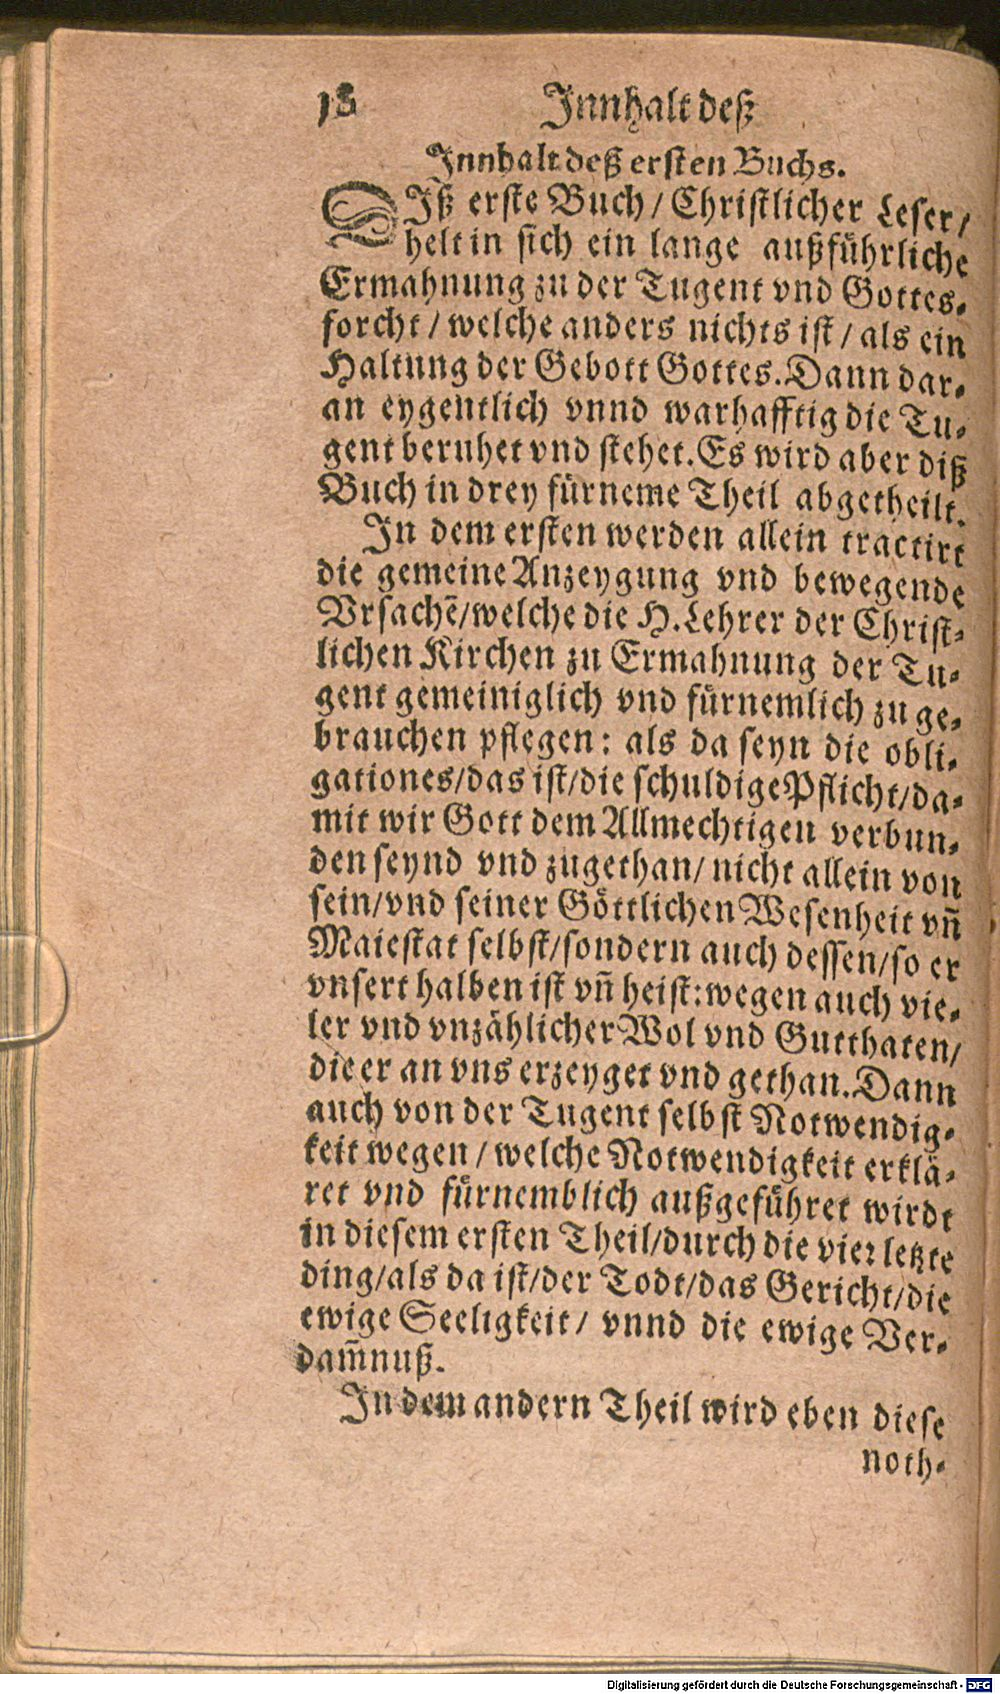 18 Innhalt deß
Innhalt deß ersten Buchs.
DIß erste Buch / Christlicher Leser /
helt in sich ein lange außführliche
Ermahnung zu der Tugent vnd Gottes-
forcht / welche anders nichts ist / als ein
Haltung der Gebott Gottes. Dann dar-
an eygentlich vnnd warhafftig die Tu-
gent beruhet vnd stehet. Es wird aber diß
Buch in drey fürneme Theil abgetheilt.
In dem ersten werden allein tractirt
die gemeine Anzeygung vnd bewegende
Vrsachē/welche die H. Lehrer der Christ-
lichen Kirchen zu Ermahnung der Tu-
gent gemeiniglich vnd fürnemlich zu ge-
brauchen pflegen: als da seyn die obli-
gationes/das ist/die schuldige Pflicht/da-
mit wir Gott dem Allmechtigen verbun-
den seynd vnd zugethan/ nicht allein von
sein/vnd seiner Göttlichen Wesenheit vñ
Maiestat selbst/sondern auch dessen/so er
vnsert halben ist vñ heist: wegen auch vie-
ler vnd vnzählicher Wol vnd Gutthaten/
die er an vns erzeyget vnd gethan. Dann
auch von der Tugent selbst Notwendig-
keit wegen / welche Notwendigkeit erklä-
ret vnd fürnemblich außgeführet wirdt
in diesem ersten Theil/durch die vier letzte
ding/als da ist/der Todt/das Gericht/die
ewige Seeligkeit/ vnnd die ewige Ver-
dam̄nuß.
In dem andern Theil wird eben diese
noth-
Digitalisierung gefördert durch die Deutsche Forschungsgemeinschaft - DFG